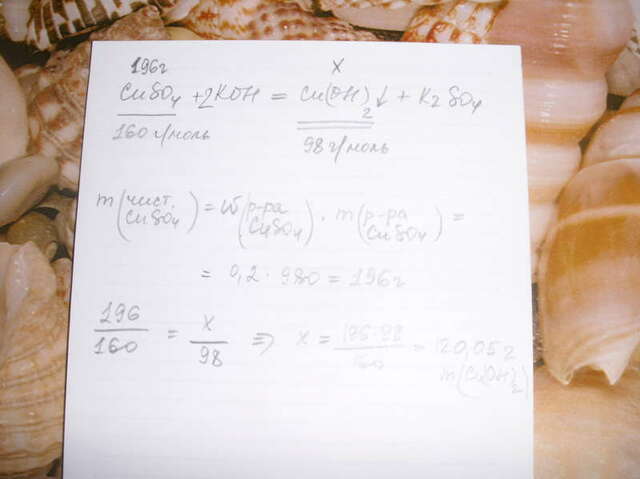 196г x
CuSO4 + 2KOH = Cu(OH)2 ↓ + K2SO4
160 г/моль 98 г/моль
m (чист. CuSO4) = W (р-ра CuSO4) · m (р-ра CuSO4) =
= 0,2 · 980 = 196г
196/160 = x/98 ⇒ x = 196·98/160 = 120,05г
m(Cu(OH)2)